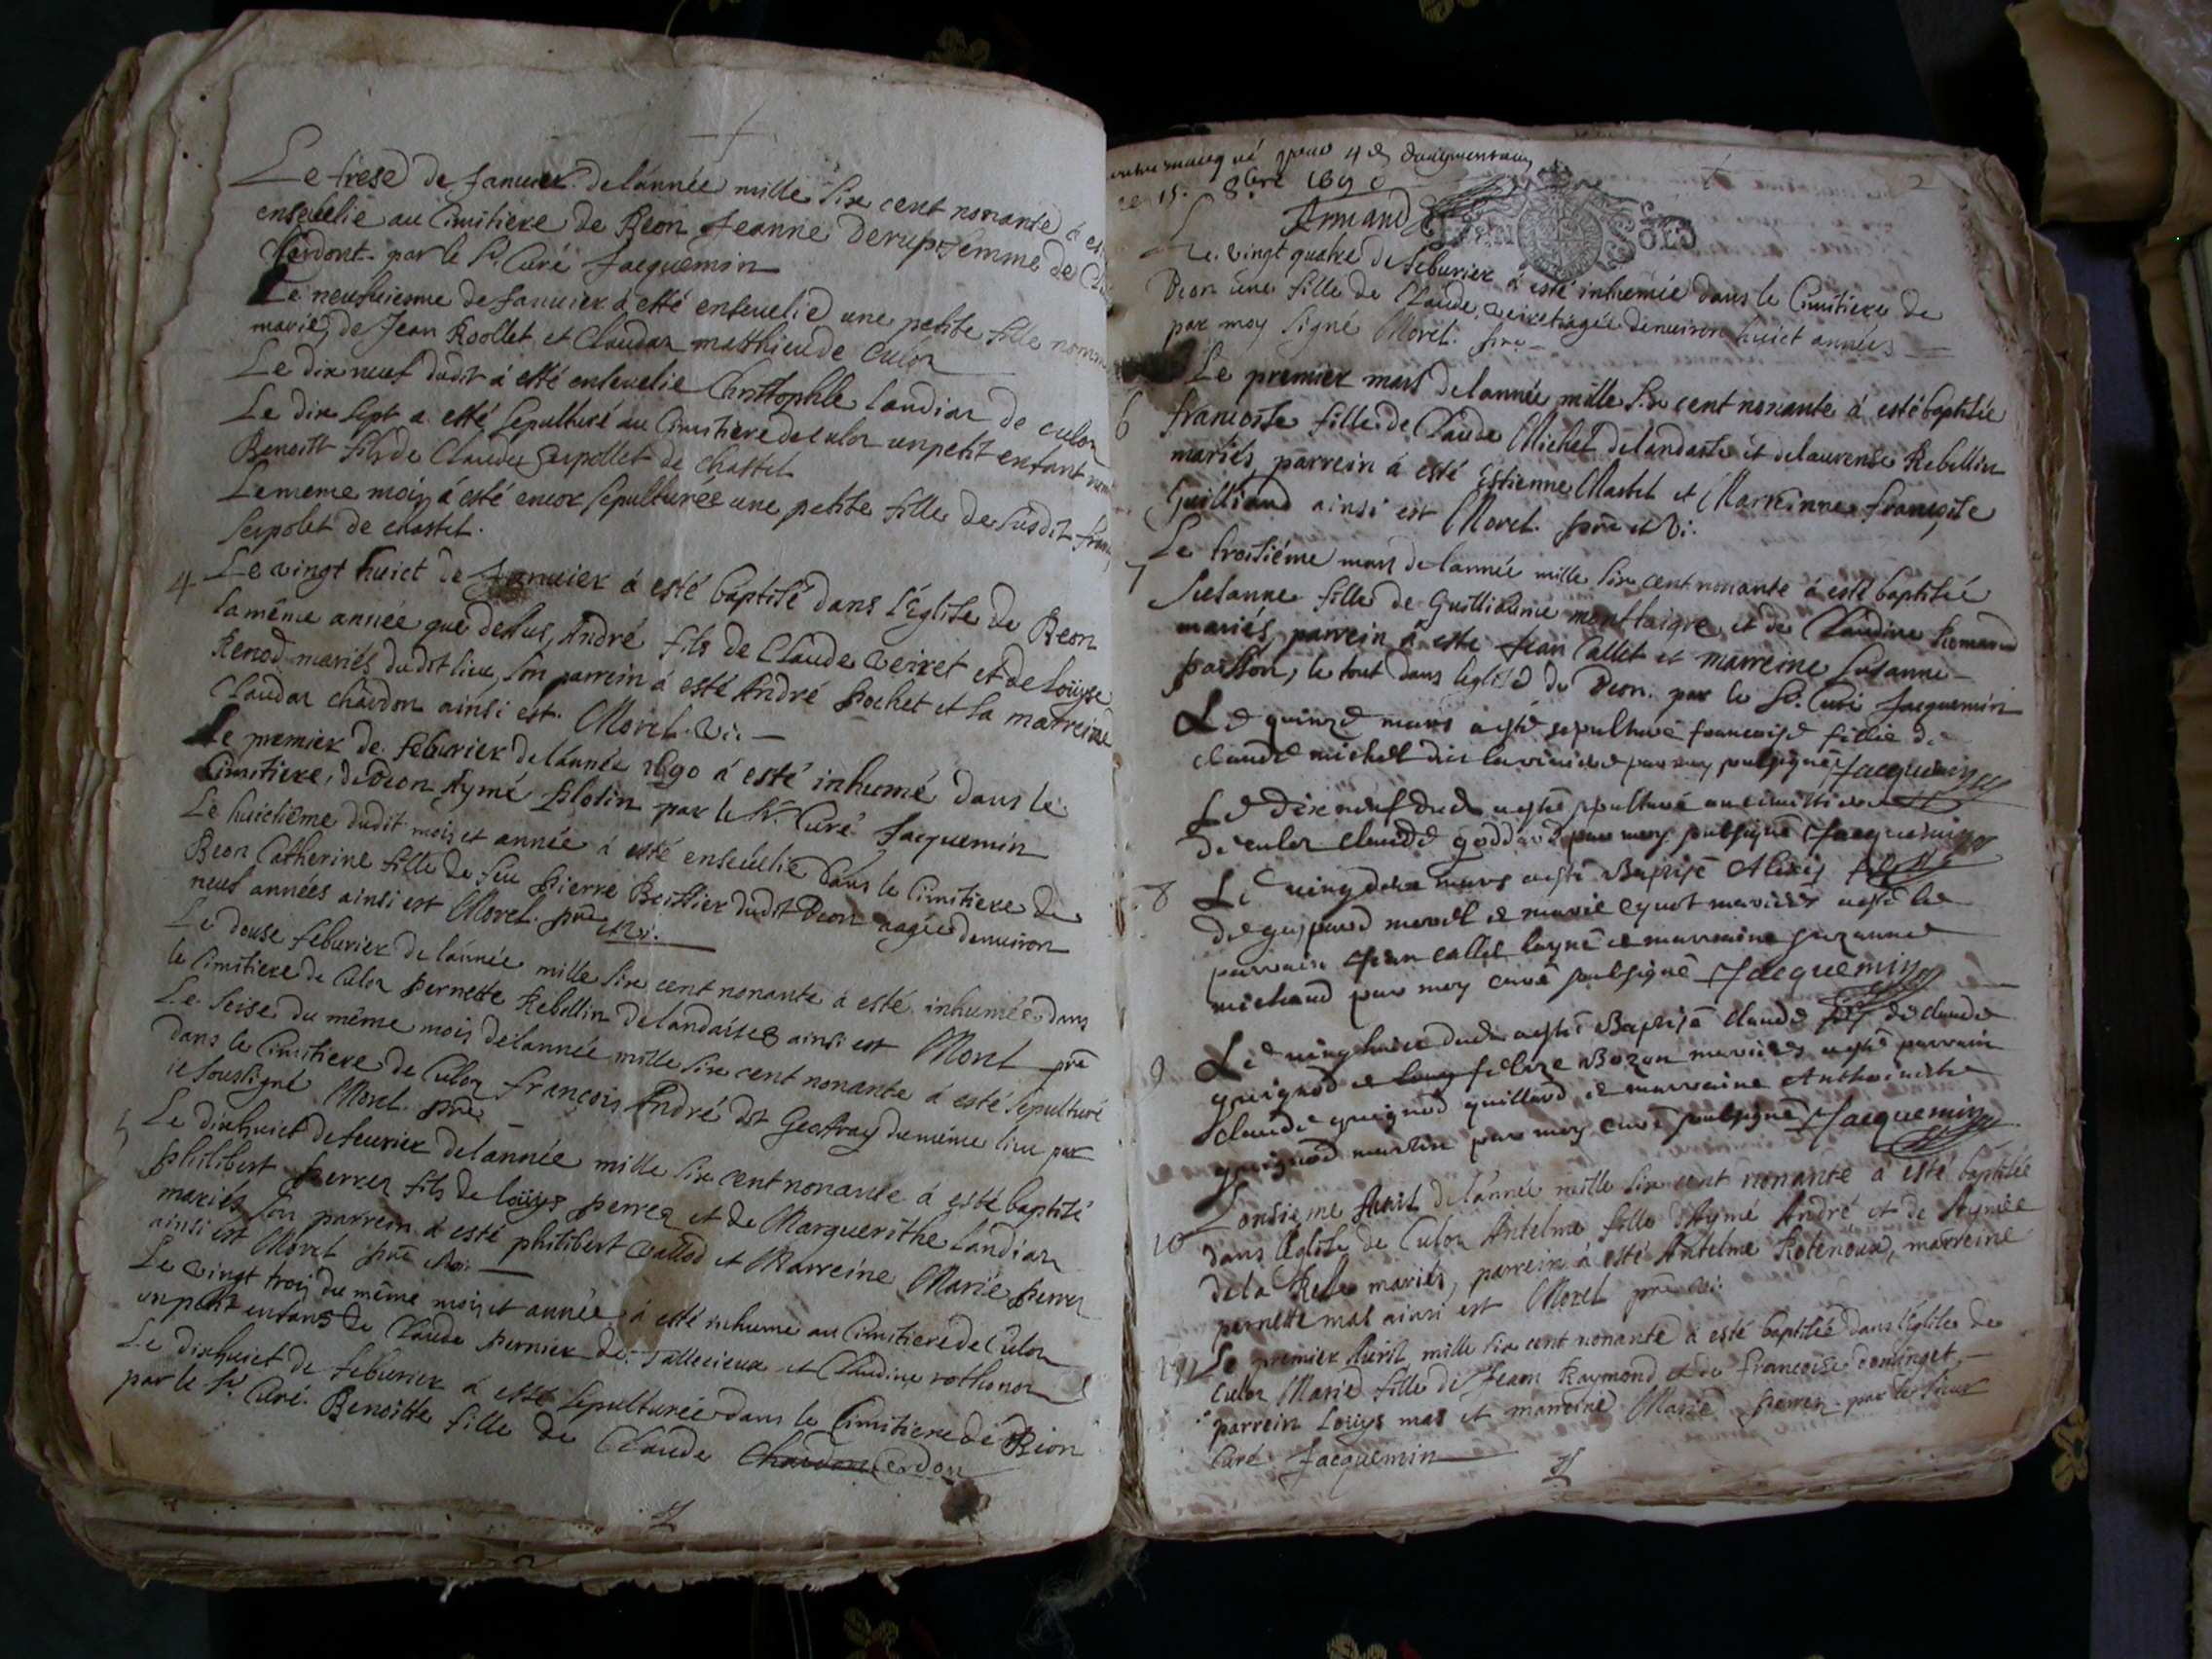 Le trese de Januier de lannée mille six cent nonante à es
enseuelie au Cimitiere de Beon Jeanne Derup femme de Cla
Chardont par le Sr Curé Jacquemin
Le neufuiesme de Januier à esté enseuelie une petite fille nomm
mariés de Jean Roollet et Claudaz matthieu de Culoz
Le dix neuf dudit à esté enseuelie Christophle Landiaz de culoz
Le dix sept a esté sepulturé au Cimitiere de Culoz un petit enfant nom
Benoist fils de Claude Serpollet de chastel
Le meme mois à esté encor sepulturée une petite fille de susdit fran
Serpolet de chastel.
4 Le vingt huict de Januier à esté baptisé dans l'Eglise de Beon
la même année que dessus, André fils de Claude Veiret et de Loüyse
Renod mariés dudit lieu, son parrein à esté André Pochet et la marreine
Claudaz chardon ainsi est. Morel. vi: —
Le premier de feburier de lannée 1690 à esté inhumé dans le
Cimitiere de Beon Aymé Filolin par le Sr. Curé Jacquemin
Le huictiême dudit mois et année à esté enseüelie dans le Cimitiere de
Beon Catherine fille de feu Pierre Beissier dudit Beon aagée denuiron
neuf années ainsi est Morel. pre vi:
Le douse feburier de lánnée mille six cent nonante à esté inhumée dans
le Cimitiere de Culoz Pernette Rebellin de landaise ainsi est Morel pre
Le seise du même mois de lannée mille six cent nonante à esté sepulturé
dans le Cimitiere de Culoz François André dit Geoffray du même lieu par
ie soussigné Morel. pre
5 Le dixhuict de feurier de lánnée mille six cent nonante à esté baptisé
philibert perrez fils de loüys perrez et de Marguerithe landiaz
mariés son parrein à esté philibert Vallod et Marreine Marie perrez
ainsi est Morel pre vi: —
Le vingt trois du même mois et année à esté inhumé au Cimitiere de Culoz
un petit enfans de Claude pernier de Tallecieux et Claudine rothonod
Le dixhuict de feburier à esté sepulturée dans le Cimitiere de Beon
par le Sr. Curé. Benoitte fille de Claude Chardon Cerdon
marqué pour 4
ce 15. 8bre 1690
Armand
SOLS
2
Le vingt quatre de feburier à esté inhumée dans le Cimitiere de
Beon une fille de Claude Veiret aagée denuiron huict années
par moy signé Morel. pre
6 Le premier mars de lannée mille six cent nonante à esté baptisée
francoise fille de Claude Michel de landaise et de laurense Rebellin
mariés, parrein à esté Estienne Martel et Marreinne françoise
Guilliand ainsi est Morel. pre et vi:
7 Le troisiéme mars de lannée mille six cent nonante à esté baptisée
Susanne fille de Guilliaume montlaigre et de Claudine Romand
mariés, parrein à este Jean Callet et marreine Susanne
passon, le tout dans leglise de Beon. par le Sr. Curé Jacquemin
Le quinze mars a esté sepulturé francoise fillie de
claude michel par moy soubsigné Jacquemin
Le dix neuf dud a esté sepulturé au cimitiere
de culoz claude goddard par moy soubsigné Jacquemin
8 Le ving deux mars a esté Baptisé Alexis
de gaspard morel et marie cynot mariées a esté le
parrain Jean callet layné et marraine suzanne
michaud par moy curé soubsigné Jacquemin
9 Le ving huict dud a esté Baptisé claude fils de claude
guignod et felize Bozon mariées a esté parrain
claude guignod guilland et marraine Anthoinette
guignod martin par moy curé soubsigné Jacquemin
10 Lonsieme Auril de lánnée mille six cent nonante à esté baptisée
dans l'Eglise de Culoz Antelma fille d'Aymé André et de Aymée
de la Relle mariés, parrein à esté Antelme Rotenoud, marreine
pernette mas ainsi est Morel pre vi:
11 Le premier Auril mille six cent nonante à esté baptisée dans l'Eglise de
Culoz Marie fille de Jean Raymond et de francoise dominget,
parrein Loüys mas et marreine Marie perrez par le sieur
Curé Jacquemin